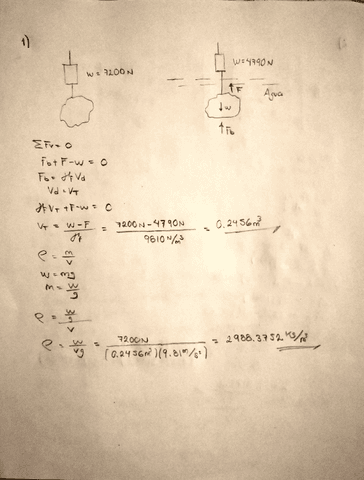 1)
W = 7200N
W = 4790N
F
Agua
W
Fb
ΣFv = 0
Fb + F - W = 0
Fb = γf Vd
Vd = VT
γf VT + F - W = 0
VT = (W - F)/γf = (7200N - 4790N)/(9810 N/m³) = 0.2456m³
ρ = m/V
W = mg
m = W/g
ρ = (W/g)/V
ρ = W/Vg = 7200N/((0.2456m³)(9.81m/s²)) = 2988.3752 kg/m³